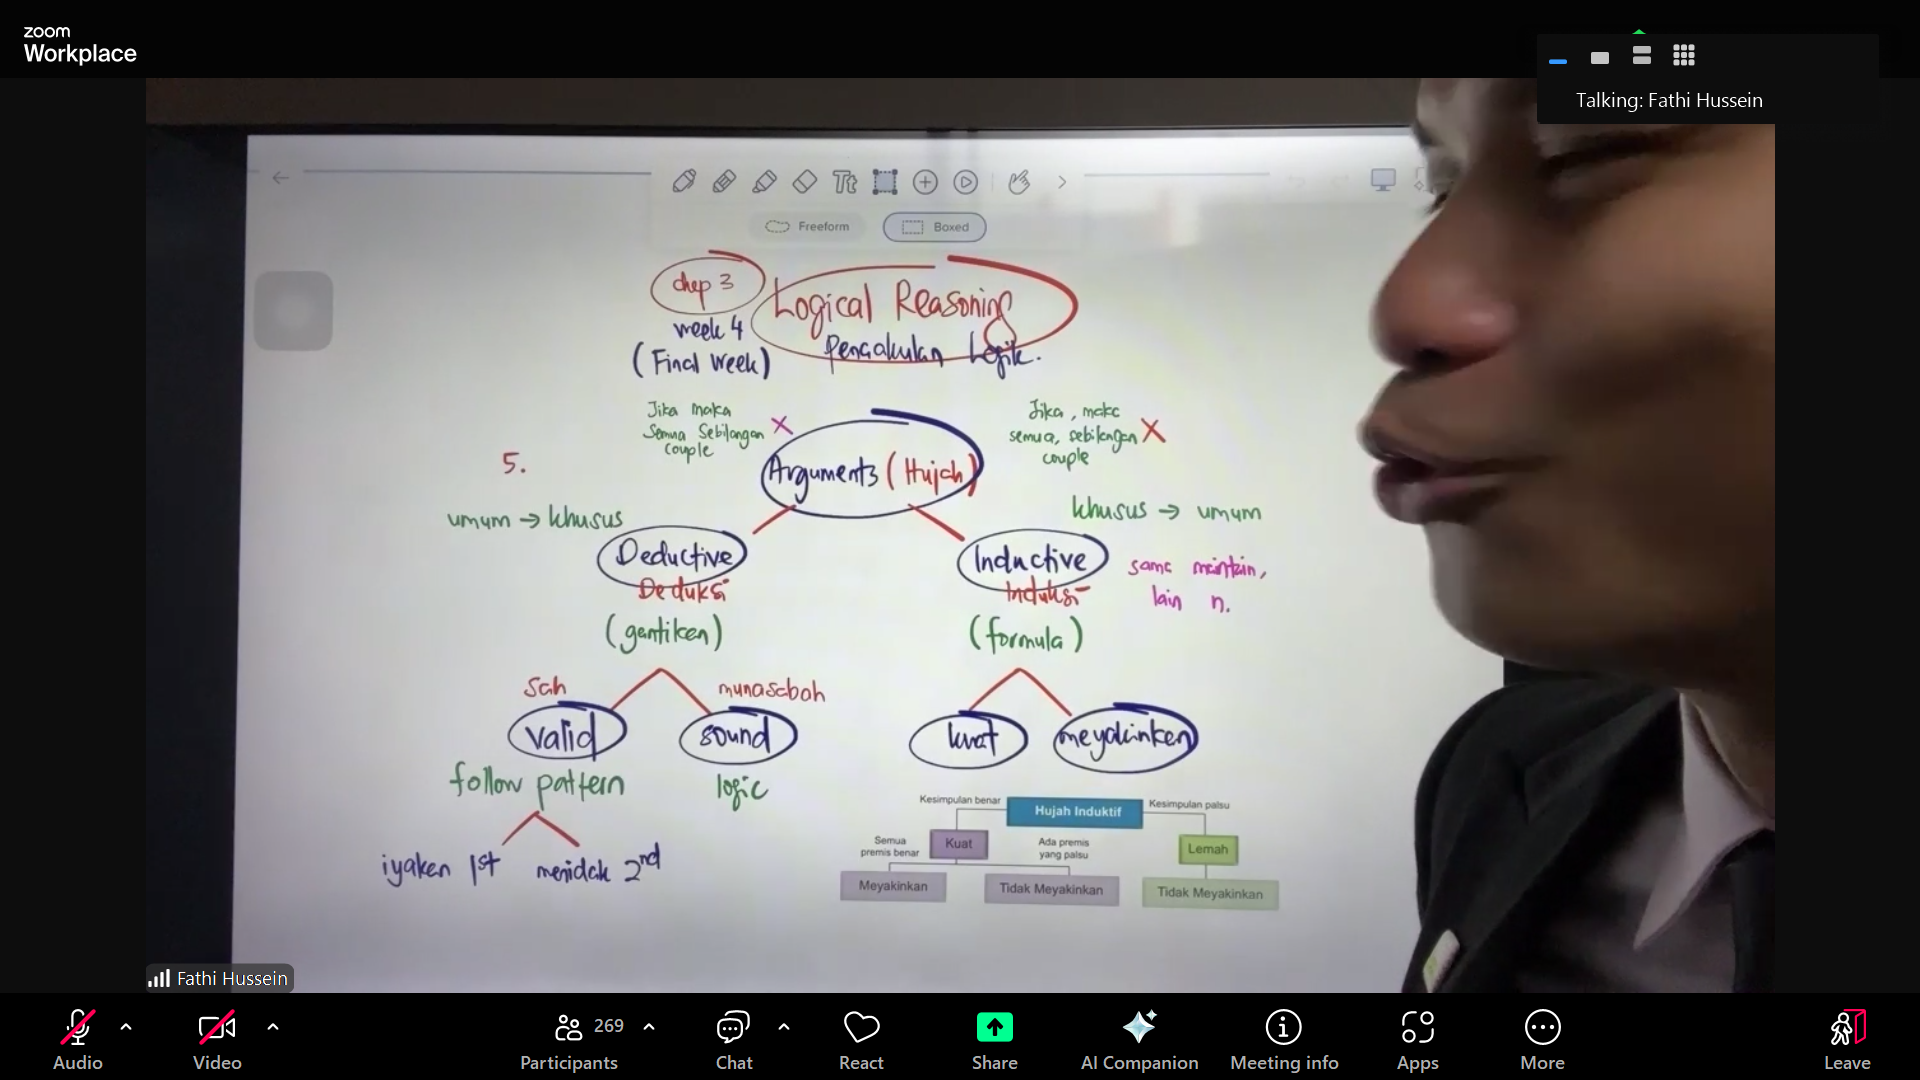 zoom
Workplace
Talking: Fathi Hussein
Tt
Freeform
Boxed
chap 3
Logical Reasoning
week 4
(Final Week)
Penaakulan Logik.
Jika maka
Semua Sebilangan
couple
X
Jika, maka
semua, sebilangan
couple
X
Arguments (Hujah)
5.
umum → khusus
khusus → umum
Deductive
Deduksi
(gantikan)
Inductive
Induksi
(formula)
same maintain,
lain n.
sah
valid
munasabah
sound
follow pattern
logic
iyakan 1st
menidak 2nd
kuat
meyakinkan
Kesimpulan benar
Hujah Induktif
Kesimpulan palsu
Semua
premis benar
Kuat
Ada premis
yang palsu
Lemah
Meyakinkan
Tidak Meyakinkan
Tidak Meyakinkan
Fathi Hussein
Audio
Video
269
Participants
Chat
React
Share
AI Companion
Meeting info
Apps
More
Leave